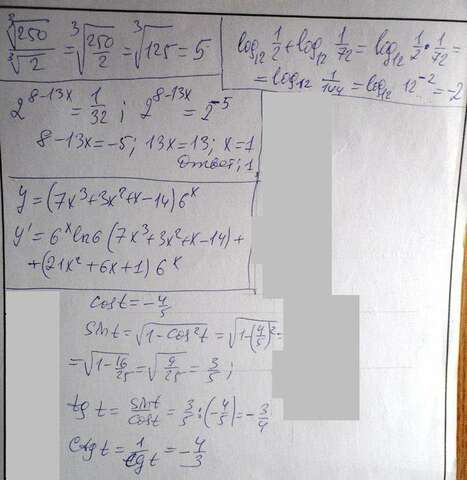 ∛250/∛2 = ∛(250/2) = ∛125 = 5
log₁₂ 1/2 + log₁₂ 1/72 = log₁₂ 1/2 · 1/72 =
= log₁₂ 1/144 = log₁₂ 12⁻² = -2
2^(8-13x) = 1/32 ; 2^(8-13x) = 2⁻⁵
8-13x = -5; 13x = 13; x = 1
Ответ: 1
y = (7x³+3x²+x-14) 6ˣ
y' = 6ˣ ln6 (7x³+3x²+x-14) +
+(21x²+6x+1) 6ˣ
cost = -4/5
sint = √(1-cos²t) = √(1-(4/5)²) =
= √(1-16/25) = √(9/25) = 3/5 ;
tg t = sint/cost = 3/5 : (-4/5) = -3/4
ctg t = 1/tg t = -4/3